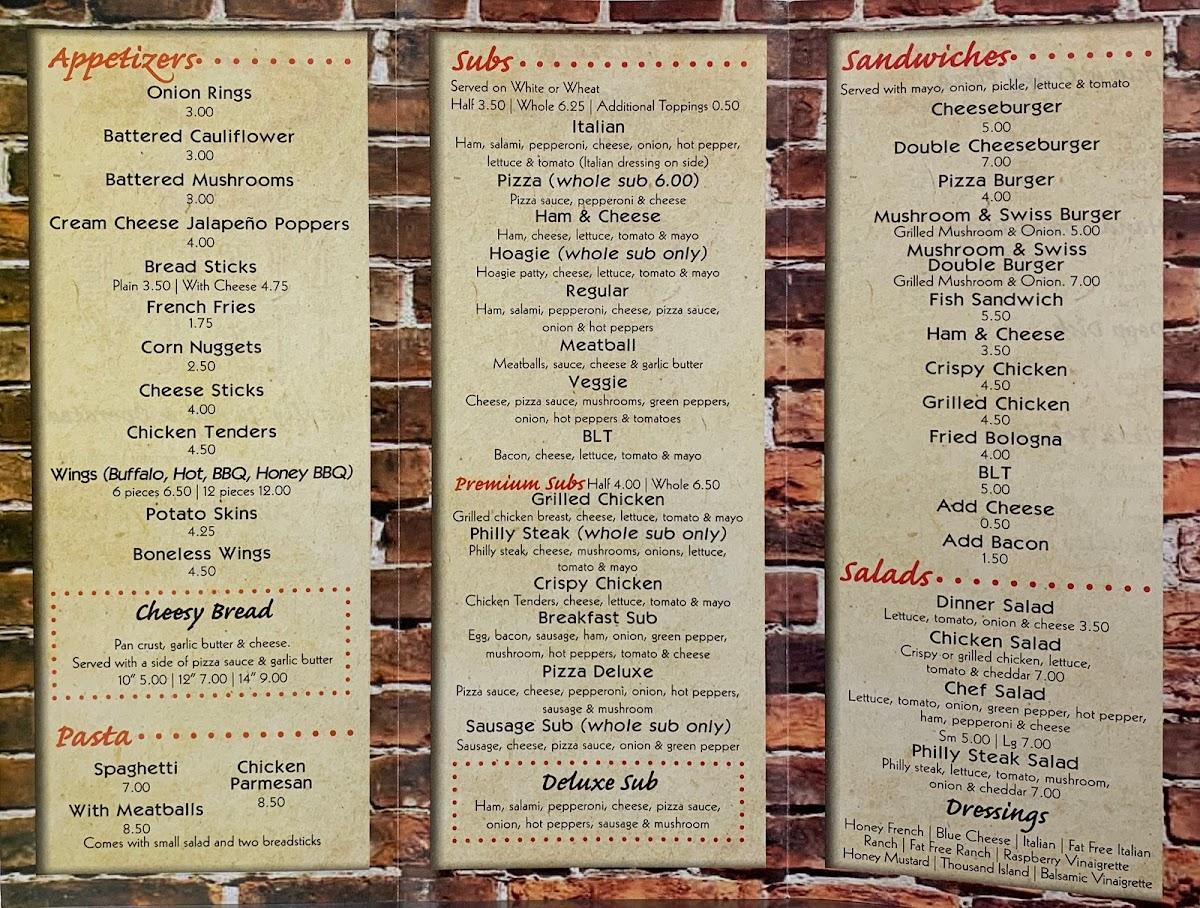 Appetizers
Onion Rings
3.00
Battered Cauliflower
3.00
Battered Mushrooms
3.00
Cream Cheese Jalapeño Poppers
4.00
Bread Sticks
Plain 3.50 | With Cheese 4.75
French Fries
1.75
Corn Nuggets
2.50
Cheese Sticks
4.00
Chicken Tenders
4.50
Wings (Buffalo, Hot, BBQ, Honey BBQ)
6 pieces 6.50 | 12 pieces 12.00
Potato Skins
4.25
Boneless Wings
4.50
Cheesy Bread
Pan crust, garlic butter & cheese.
Served with a side of pizza sauce & garlic butter
10" 5.00 | 12" 7.00 | 14" 9.00
Pasta
Spaghetti
7.00
With Meatballs
8.50
Chicken
Parmesan
8.50
Comes with small salad and two breadsticks
Subs
Served on White or Wheat
Half 3.50 | Whole 6.25 | Additional Toppings 0.50
Italian
Ham, salami, pepperoni, cheese, onion, hot pepper,
lettuce & tomato (Italian dressing on side)
Pizza (whole sub 6.00)
Pizza sauce, pepperoni & cheese
Ham & Cheese
Ham, cheese, lettuce, tomato & mayo
Hoagie (whole sub only)
Hoagie patty, cheese, lettuce, tomato & mayo
Regular
Ham, salami, pepperoni, cheese, pizza sauce,
onion & hot peppers
Meatball
Meatballs, sauce, cheese & garlic butter
Veggie
Cheese, pizza sauce, mushrooms, green peppers,
onion, hot peppers & tomatoes
BLT
Bacon, cheese, lettuce, tomato & mayo
Premium Subs Half 4.00 | Whole 6.50
Grilled Chicken
Grilled chicken breast, cheese, lettuce, tomato & mayo
Philly Steak (whole sub only)
Philly steak, cheese, mushrooms, onions, lettuce,
tomato & mayo
Crispy Chicken
Chicken Tenders, cheese, lettuce, tomato & mayo
Breakfast Sub
Egg, bacon, sausage, ham, onion, green pepper,
mushroom, hot peppers, tomato & cheese
Pizza Deluxe
Pizza sauce, cheese, pepperoni, onion, hot peppers,
sausage & mushroom
Sausage Sub (whole sub only)
Sausage, cheese, pizza sauce, onion & green pepper
Deluxe Sub
Ham, salami, pepperoni, cheese, pizza sauce,
onion, hot peppers, sausage & mushroom
Sandwiches
Served with mayo, onion, pickle, lettuce & tomato
Cheeseburger
5.00
Double Cheeseburger
7.00
Pizza Burger
4.00
Mushroom & Swiss Burger
Grilled Mushroom & Onion. 5.00
Mushroom & Swiss
Double Burger
Grilled Mushroom & Onion. 7.00
Fish Sandwich
5.50
Ham & Cheese
3.50
Crispy Chicken
4.50
Grilled Chicken
4.50
Fried Bologna
4.00
BLT
5.00
Add Cheese
0.50
Add Bacon
1.50
Salads
Dinner Salad
Lettuce, tomato, onion & cheese 3.50
Chicken Salad
Crispy or grilled chicken, lettuce,
tomato & cheddar 7.00
Chef Salad
Lettuce, tomato, onion, green pepper, hot pepper,
ham, pepperoni & cheese
Sm 5.00 | Lg 7.00
Philly Steak Salad
Philly steak, lettuce, tomato, mushroom,
onion & cheddar 7.00
Dressings
Honey French | Blue Cheese | Italian | Fat Free Italian
Ranch | Fat Free Ranch | Raspberry Vinaigrette
Honey Mustard | Thousand Island | Balsamic Vinaigrette